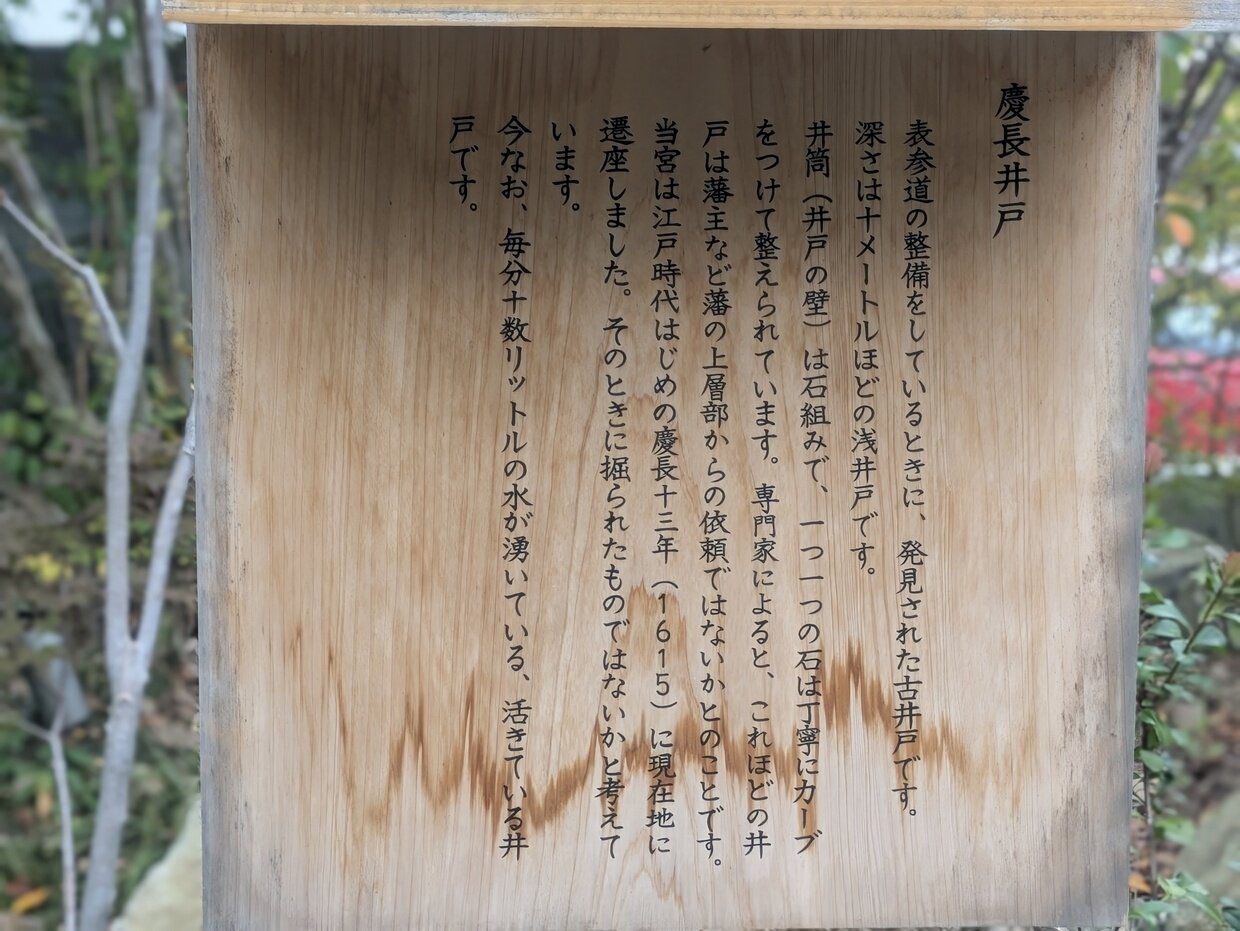 慶長井戸
表参道の整備をしているときに、発見された古井戸です。
深さは十メートルほどの浅井戸です。
井筒（井戸の壁）は石組みで、一つ一つの石は丁寧にカーブ
をつけて整えられています。専門家によると、これほどの井
戸は藩主など藩の上層部からの依頼ではないかとのことです。
当宮は江戸時代はじめの慶長十三年（１６１５）に現在地に
遷座しました。そのときに掘られたものではないかと考えて
います。
今なお、毎分十数リットルの水が湧いている、活きている井
戸です。